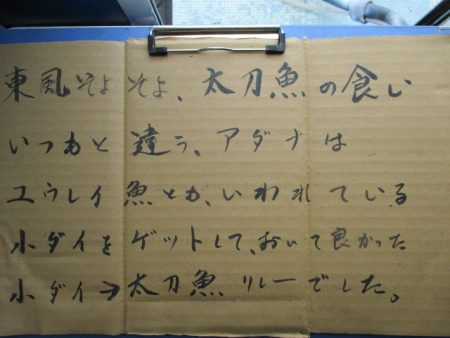 東風そよそよ、太刀魚の食い
いつもと違う、アダナは
ユウレイ魚とか、いわれている
小ダイをゲットして、おいて良かった
小ダイ→太刀魚リレーでした。